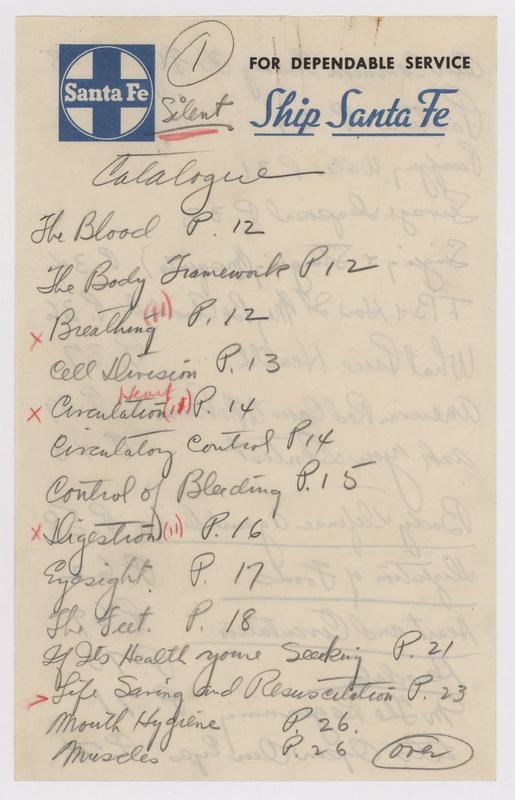 1
FOR DEPENDABLE SERVICE
Santa Fe
Silent
Ship Santa Fe
Catalogue
The Blood P. 12
The Body Framework P 12
x Breathing (11) P. 12
Cell Division P. 13
Heart
x Circulation (11) P. 14
Circulatory Control P 14
Control of Bleeding P. 15
x Digestion (11) P. 16
Eyesight. P. 17
The Feet. P. 18
If Its Health youre Seeking P. 21
> Life Saving and Resuscitation P. 23
Mouth Hygiene P. 26.
Muscles P. 26 over